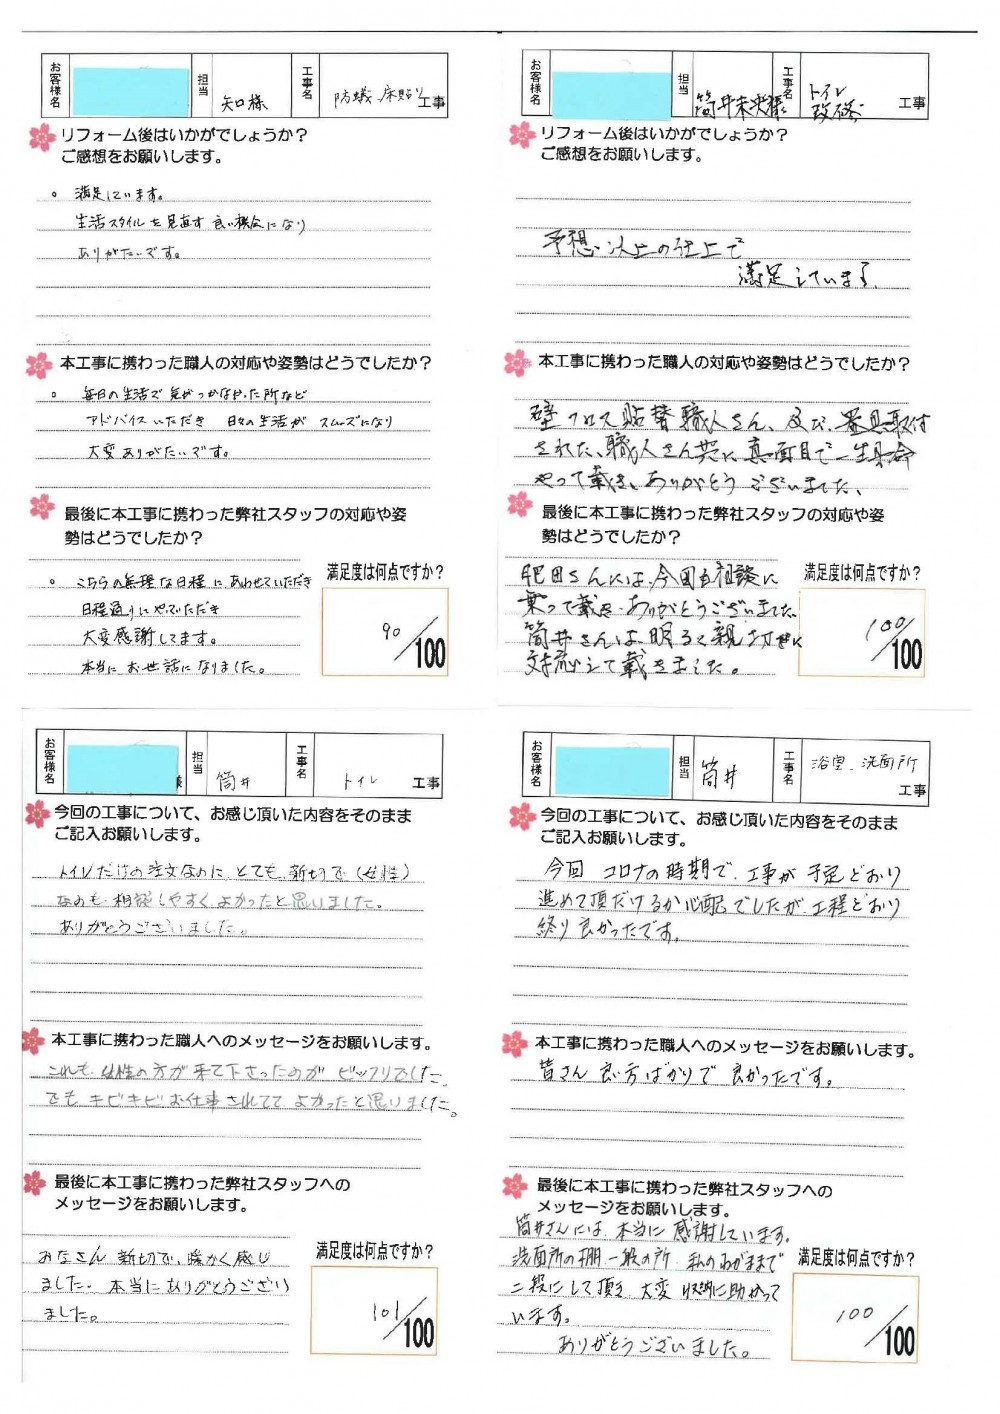 お客様名
担当
矢口様
工事名
防蟻 床貼り工事
リフォーム後はいかがでしょうか？
ご感想をお願いします。
。満足しています。
生活スタイルを見直す良い機会になり
ありがたいです。
本工事に携わった職人の対応や姿勢はどうでしたか？
。毎日の生活で気がつかなかった所など
アドバイスいただき 日々の生活が スムーズになり
大変ありがたいです。
最後に本工事に携わった弊社スタッフの対応や姿
勢はどうでしたか？
。こちらの無理な日程にあわせていただき
日程通りにやっていただき
大変感謝してます。
本当にお世話になりました。
満足度は何点ですか？
90/100
お客様名
担当
筒井未来様
工事名
トイレ
改修 工事
リフォーム後はいかがでしょうか？
ご感想をお願いします。
予想以上の仕上で
満足しています。
本工事に携わった職人の対応や姿勢はどうでしたか？
壁クロス貼替職人さん、及び、器具取付
された、職人さん共に、真面目で一生懸命
やって戴き、ありがとうございました、
最後に本工事に携わった弊社スタッフの対応や姿
勢はどうでしたか？
肥田さんには、今回も相談に
乗って戴き、ありがとうございました、
筒井さんは、明るく親切に
対応して戴きました。
満足度は何点ですか？
100/100
お客様名
様
担当
筒井
工事名
トイレ 工事
今回の工事について、お感じ頂いた内容をそのまま
ご記入お願いします。
トイレだけの注文なのに、とても、新切で(女性)
なのも、相談しやすく、よかったと思いました。
ありがとうございました。
本工事に携わった職人へのメッセージをお願いします。
これも、女性の方が来て下さったのが ビックリでした、
でも キビキビお仕事されてて よかったと思いました。
最後に本工事に携わった弊社スタッフへの
メッセージをお願いします。
みなさん 新切で、暖かく感じ
ました。本当にありがとうござい
ました。
満足度は何点ですか？
101/100
お客様名
担当
筒井
工事名
浴室、洗面所
工事
今回の工事について、お感じ頂いた内容をそのまま
ご記入お願いします。
今回 コロナの時期で、工事が予定どおり
進めて頂だけるか心配でしたが、工程どおり
終り良かったです。
本工事に携わった職人へのメッセージをお願いします。
皆さん 良い方ばかりで 良かったです。
最後に本工事に携わった弊社スタッフへの
メッセージをお願いします。
筒井さんには、本当に感謝しています。
洗面所の棚 一段の所、私のわがままで
二段にして頂き 大変 収納に助かって
います。
ありがとうございました。
満足度は何点ですか？
100/100